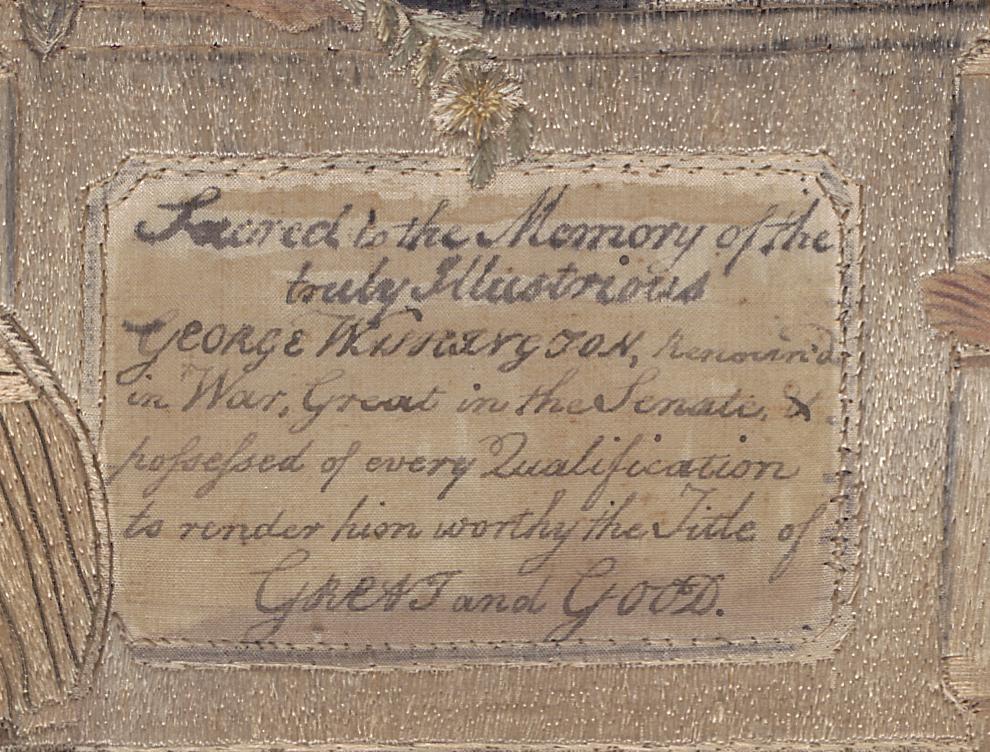 Sacred to the Memory of the
truly Illustrious
GEORGE WASHINGTON, Renown'd
in War, Great in the Senate, &
poſseſsed of every Qualification
to render him worthy the Title of
GREAT and GOOD.